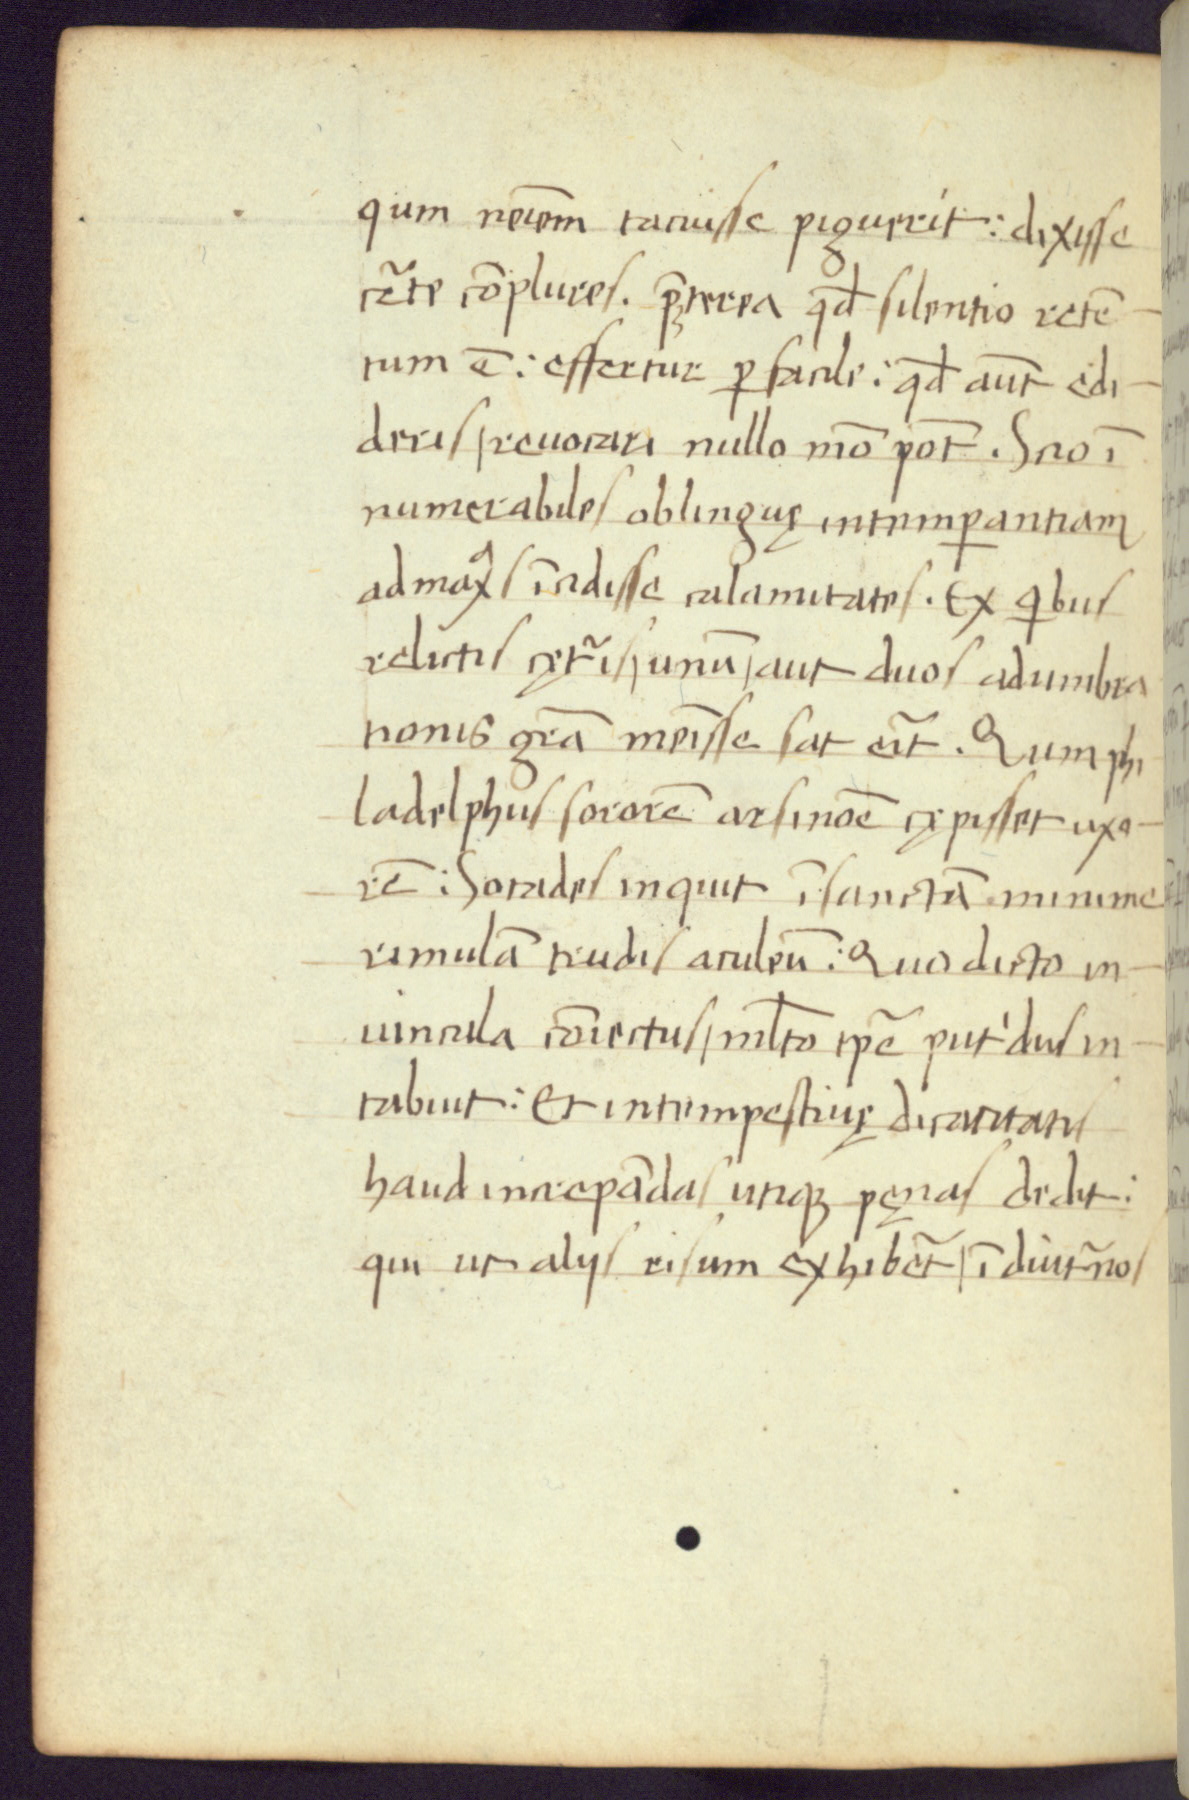 qum neīem tacuisse piguerit: dixisse
cr̄te cōplures. p̄terea qd̄ silentio retē-
tum ē: effertur ꝑ facile: qd̄ aūt edi-
deris/reuocari nullo mō pōt. Scio ī
numerabiles oblinguę intemꝑantiam
ad maxᵃs īcidisse calamitates. Ex qⁱbus
relictis cęt̄is/unū/aut duos adumbra
tionis grā meīsse sat erīt. Qum phi
ladelphus sororē arsinoē cępisset uxo-
rē: Sotades inquit īsanctā minime
rimulā trudis aculeū: Quo dicto in-
uincula cōiectus/ml̄to tp̄e putⁱdus in-
tabuit: Et intempestiuę dicacitatis
haud increpādas utiqꝫ pęnas dedit:
qui ut alijs risum exhibēt/ī diut̄nos